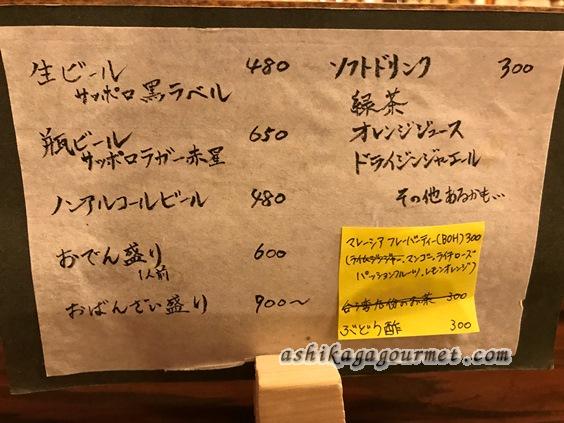 生ビール 480
サッポロ黒ラベル
瓶ビール 650
サッポロラガー赤星
ノンアルコールビール 480
おでん盛り 600
1人前
おばんざい盛り 900〜
ソフトドリンク 300
緑茶
オレンジジュース
ドライジンジャエール
その他あるかも…
マレーシア フレーバーティー(BOH) 300
(ライムジンジャー、マンゴー、ライチローズ
パッションフルーツ、レモンオレンジ)
お茶 300
ぶどう酢 300
ashikagagourmet.com